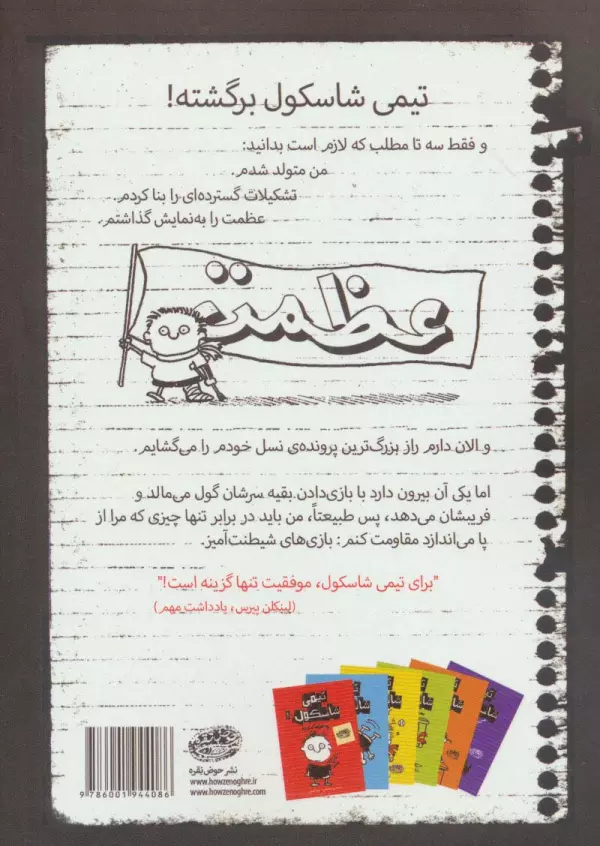 تیمی شاسکول برگشته!
و فقط سه تا مطلب که لازم است بدانید:
من متولد شدم.
تشکیلات گسترده‌ای را بنا کردم.
عظمت را به‌نمایش گذاشتم.
عظمت
و الان دارم راز بزرگ‌ترین پرونده‌ی نسل خودم را می‌گشایم.
اما یکی آن بیرون دارد با بازی‌دادن بقیه سرشان گول می‌مالد و
فریبشان می‌دهد، پس طبیعتاً، من باید در برابر تنها چیزی که مرا از
پا می‌اندازد مقاومت کنم: بازی‌های شیطنت‌آمیز.
"برای تیمی شاسکول، موفقیت تنها گزینه است!"
(لینکلن پیرس، یادداشت مهم)
تیمی
شاسکول ۱
نشر حوض نقره
www.howzenoghre.ir
www.howzenoghre.com
9 786001 944086